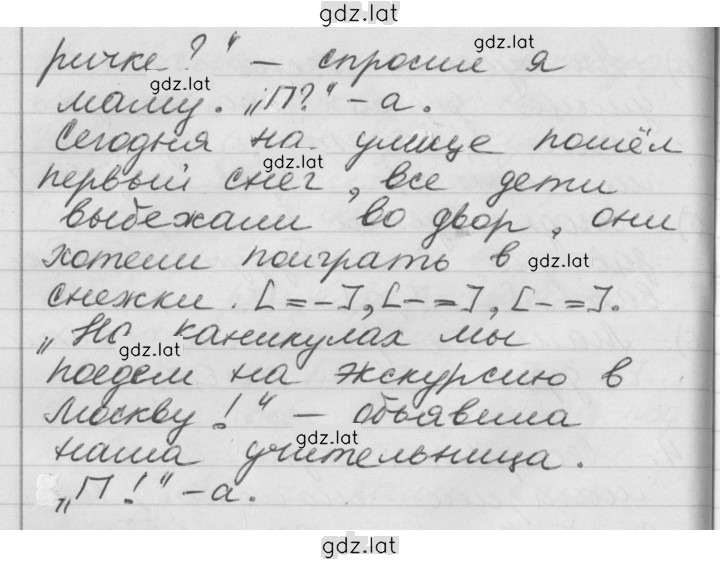 gdz.lat
ричке?" – спросил я
gdz.lat
gdz.lat
маму. „П?" – а.
Сегодня на улице пошёл
gdz.lat
первый снег, все дети
выбежали во двор, они
хотели поиграть в
gdz.lat
снежки. [= –], [– =], [– =].
„На каникулах мы
gdz.lat
поедем на экскурсию в
Москву!" – объявила
gdz.lat
наша учительница.
„П!" – а.
gdz.lat